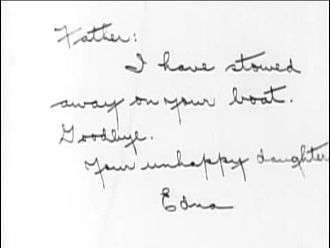 Father:
I have stowed
away on your boat.
Goodbye.
Your unhappy daughter
Edna